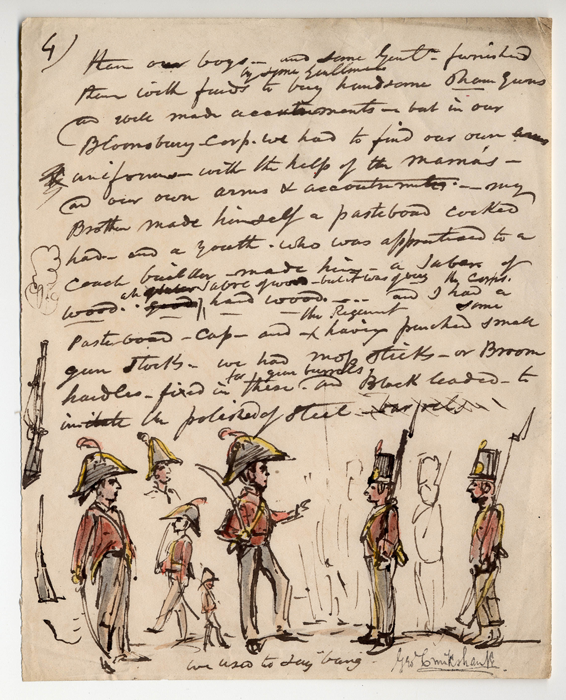 4)
than our boys — and some Gentn furnished
by some Gentlemen
them with funds to buy handsome Sham Guns
and well made accoutrements — but in our
Bloomsbury Corp. we had to find our own arms
uniforms — with the help of the mama's —
and our own arms & accoutrements. — my
Brother made himself a pasteboard cocked
had — and a Youth — who was apprenticed to a
coach builder — made him — a Sabre of
wood. hard wood. — and I had a
the Regiment some
Pasteboard — Cap — and having punched small
gun Stocks — we had mop Sticks — or Broom
for gun barrels
handles — fixed in these and Black leaded — to
imitate the polished of Steel barrels
we used to say 'bang'
Geo Cruikshank